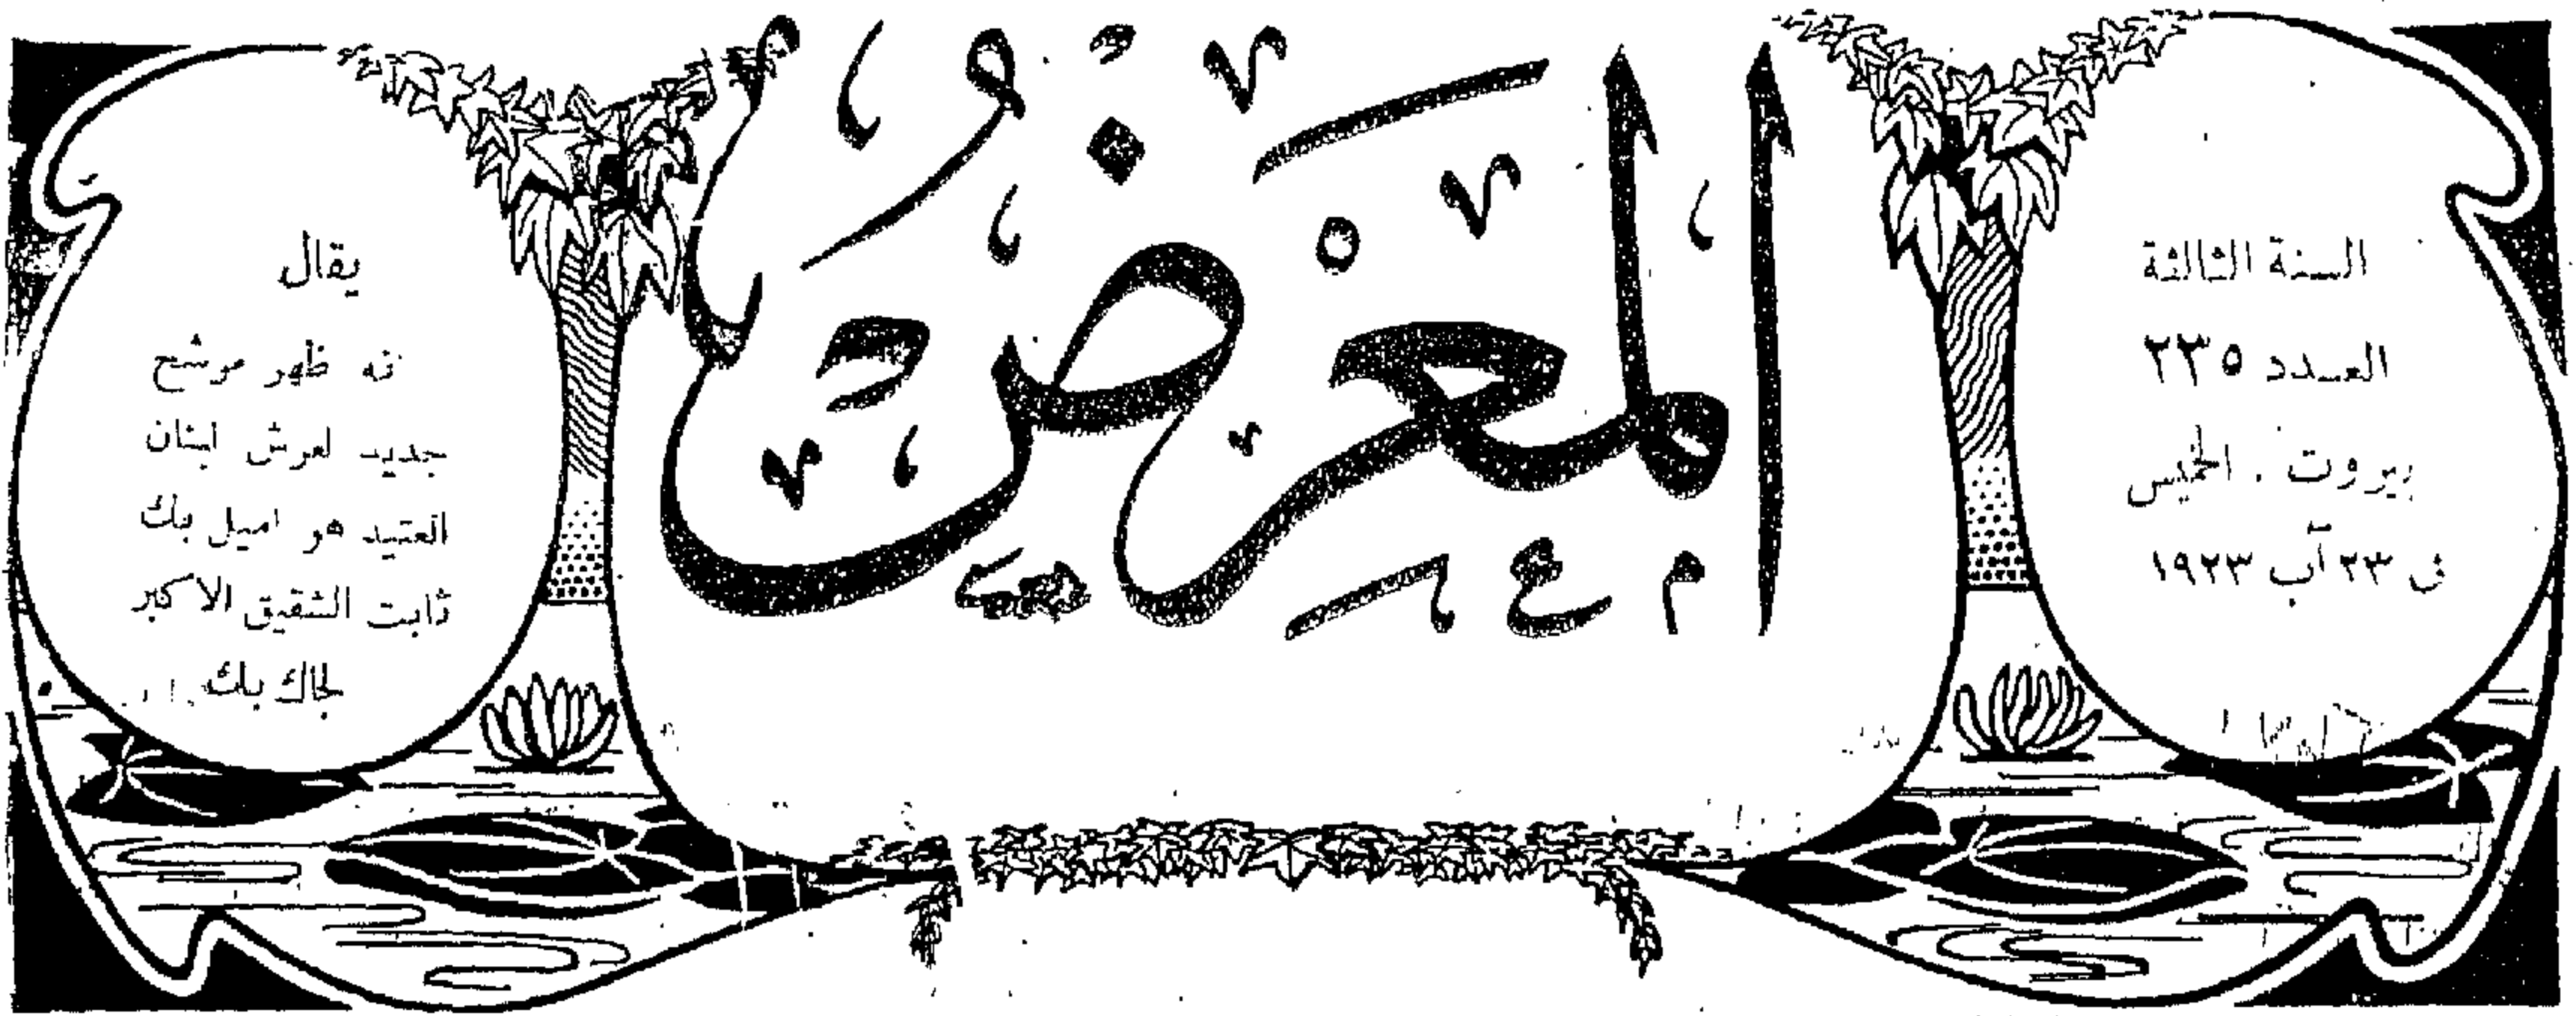 المعرض
السنة الثالثة
العدد ٢٣٥
بيروت . الخميس
في ٢٣ آب ١٩٢٣
يقال
انه ظهر مرشح
جديد لعرش لبنان
العتيد هو اميل بك
ثابت الشقيق الاكبر
لجاك بك